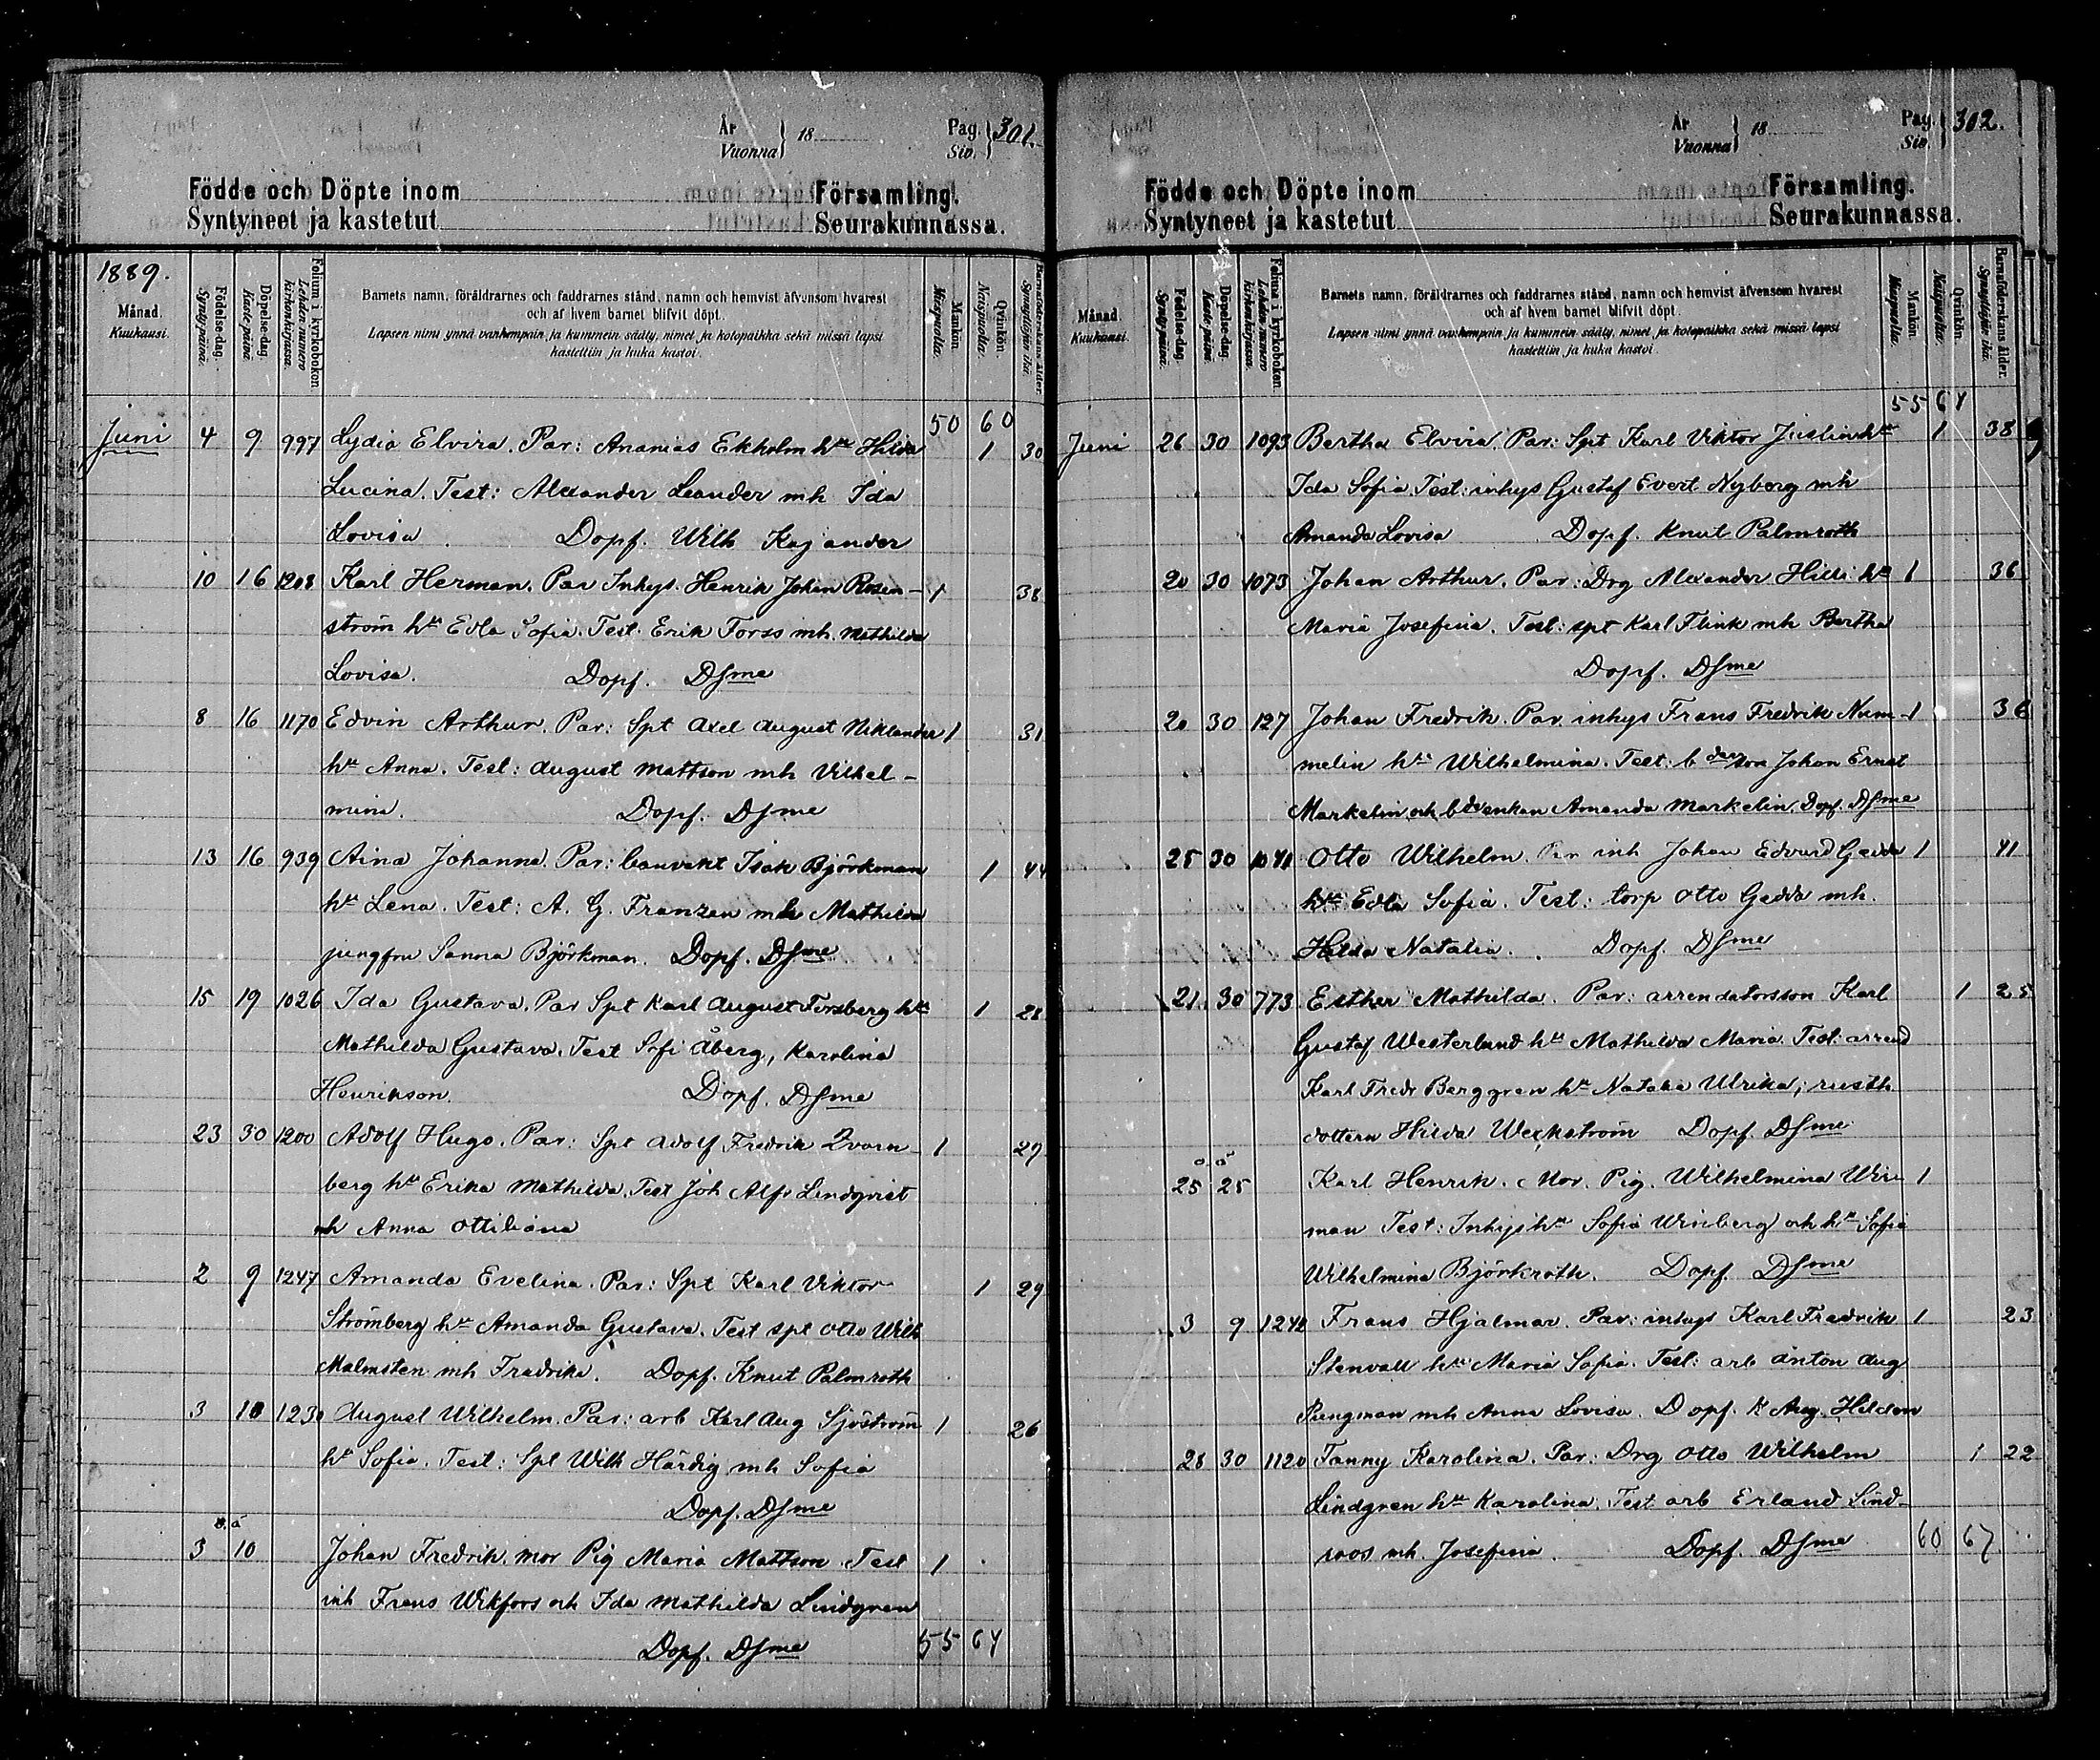 År
Vuonna
18
Pag.
Siv.
301.
Födde och Döpte inom Församling.
Syntyneet ja kastetut Seurakunnassa.
1889.
Månad.
Kuukausi.
Födelse-dag.
Syntypäinä.
Döpelse-dag.
Kaste-päinä.
Folium i kyrkoboken.
Lehden numero kirkonkirjassa.
Barnets namn, föräldrarnes och faddrarnes stånd, namn och hemvist äfvensom hvarest
och af hvem barnet blifvit döpt.
Lapsen nimi ynnä vanhempain ja kummein sääty, nimet ja kotopaikka sekä missä lapsi
kastettiin ja kuka kastoi.
Mankön.
Miespuolta.
Qvinkön.
Naispuolta.
Barnaföderskans ålder.
Synnyttäjän ikä.
50 60
Juni 4 9 997 Lydia Elvira. Par: Ananias Ekholm hu Hilda 1 30
Lucina. Test: Alexander Leander mh Ida
Lovisa Döpf. Wilh Kajander
10 16 1208 Karl Herman. Par Inhys. Henrik Johan Rosen- 1 38
ström hu Edla Sofia. Test. Erik Forss mh. Mathilda
Lovisa. Döpf. Dsme
8 16 1170 Edvin Arthur. Par: Spt Axel August Niklander 1 31
hu Anna. Test: August Mattson mh Vilhel-
mina. Döpf. Dsme
13 16 939 Aina Johanna. Par: banvakt Isak Björkman 1 44
hu Lena. Test: A. G. Franzen mh Mathilda
jungfru Sanna Björkman. Döpf. Dsme
15 19 1026 Ida Gustava. Par Spt Karl August Forsberg hu 1 28
Mathilda Gustava. Test Sofi Åberg, Karolina
Henrikson. Döpf. Dsme
23 30 1200 Adolf Hugo. Par: Spt Adolf Fredrik Qvarn- 1 29
berg hu Erika Mathilda. Test Joh Alfr Lindqvist
mh Anna Ottiliana
2 9 1247 Amanda Evelina. Par: Spt Karl Viktor 1 29
Strömberg hu Amanda Gustava. Test spt Otto Wilh
Malmsten mh Fredrika. Döpf. Knut Palmroth
3 10 1230 August Wilhelm. Par: arb Karl Aug Sjöström 1 26
hu Sofia. Test: Spt Wilh Härdig mh Sofia
Döpf. Dsme
o. ä
3 10 Johan Fredrik. mor Pig Maria Mattson. Test 1
inh Frans Wikfors och Ida Mathilda Lindgren
Döpf. Dsme 55 64
År
Vuonna
18
Pag.
Siv.
302.
Födde och Döpte inom Församling.
Syntyneet ja kastetut Seurakunnassa.
Månad.
Kuukausi.
Födelse-dag.
Syntypäinä.
Döpelse-dag.
Kaste-päinä.
Folium i kyrkoboken.
Lehden numero kirkonkirjassa.
Barnets namn, föräldrarnes och faddrarnes stånd, namn och hemvist äfvensom hvarest
och af hvem barnet blifvit döpt.
Lapsen nimi ynnä vanhempain ja kummein sääty, nimet ja kotopaikka sekä missä lapsi
kastettiin ja kuka kastoi.
Mankön.
Miespuolta.
Qvinkön.
Naispuolta.
Barnaföderskans ålder.
Synnyttäjän ikä.
55 64
Juni 26 30 1093 Bertha Elvira. Par: Spt Karl Viktor Juslin hu 1 38
Ida Sofia. Test: inhys Gustaf Evert Nyberg mh
Amanda Lovisa Döpf. Knut Palmroth
20 30 1073 Johan Arthur. Par: Drg Alexander Hilli hu 1 36
Maria Josefina. Test: spt Karl Flink mh Bertha
Döpf. Dsme
20 30 127 Johan Fredrik. Par. inhys Frans Fredrik Num- 1 36
melin hu Wilhelmina. Test: Johan Ernst
Markelin och Amanda Markelin. Döpf. Dsme
25 30 1041 Otto Wilhelm. Par inh Johan Edvard Gedda 1 41
hu Edla Sofia. Test: torp Otto Gedda mh.
Hilda Natalia. Döpf. Dsme
21 30 773 Esther Mathilda. Par: arrendatorsson Karl 1 25
Gustaf Westerlund hu Mathilda Maria. Test: arrend
Karl Fredr Berggren hu Natalia Ulrika; rusth
dottern Hilda Weckström Döpf. Dsme
o. ä
25 25 Karl Henrik. Mor. Pig. Wilhelmina Win- 1
man Test: Inhys hu Sofia Winberg och hu Sofia
Wilhelmina Björkroth. Döpf. Dsme
3 9 1242 Frans Hjalmar. Par: inhys Karl Fredrik 1 23
Stenvall hu Maria Sofia. Test: arb Anton Aug
Pungman mh Anna Lovisa. Döpf. K Aug. Hildén
28 30 1120 Fanny Karolina. Par: Drg Otto Wilhelm 1 22
Lindgren hu Karolina. Test arb Erland Lind-
roos mh. Josefina. Döpf. Dsme 60 67